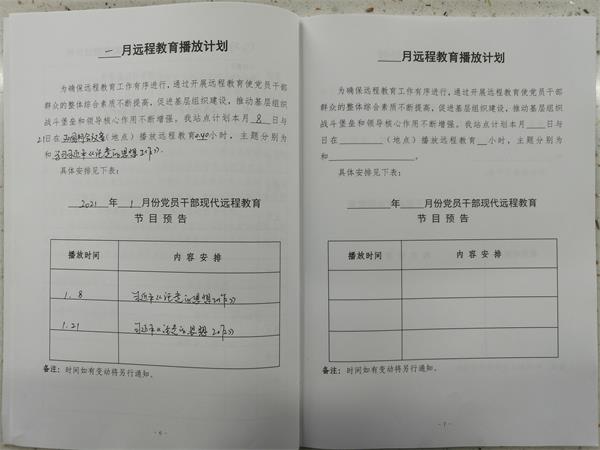 一月远程教育播放计划
为确保远程教育工作有序进行，通过开展远程教育使党员干部
群众的整体综合素质不断提高，促进基层组织建设，推动基层组织
战斗堡垒和领导核心作用不断增强。我站点计划本月 8 日与
21日在（地点）播放远程教育小时，主题分别为
和
具体安排见下表：
2021 年 1 月份党员干部现代远程教育
节目预告
播放时间 内容安排
1.8
1.21
备注：时间如有变动将另行通知。
- 6 -
____月远程教育播放计划
为确保远程教育工作有序进行，通过开展远程教育使党员干部
群众的整体综合素质不断提高，促进基层组织建设，推动基层组织
战斗堡垒和领导核心作用不断增强。我站点计划本月____日与
日在________（地点）播放远程教育__小时，主题分别为
和________________。
具体安排见下表：
________年____月份党员干部现代远程教育
节目预告
播放时间 内容安排
备注：时间如有变动将另行通知。
- 7 -